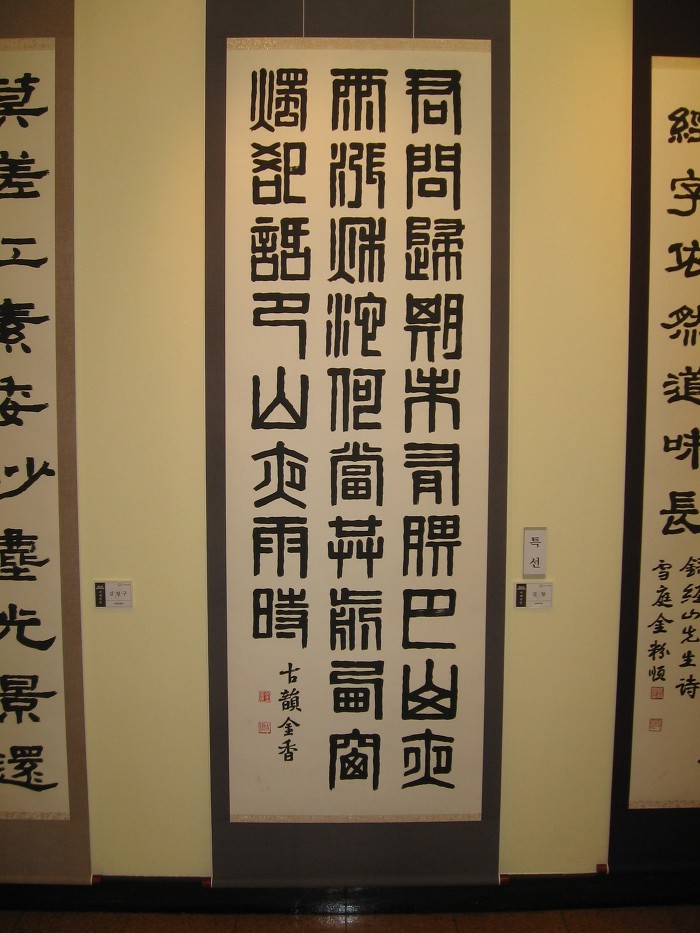 經字依然道味長
錄經山先生詩
雪庭金粉順
특선
君問歸期未有期巴山夜
雨漲秋池何當共剪西窗
燭卻話巴山夜雨時
古韻金香
莫素塵光景還